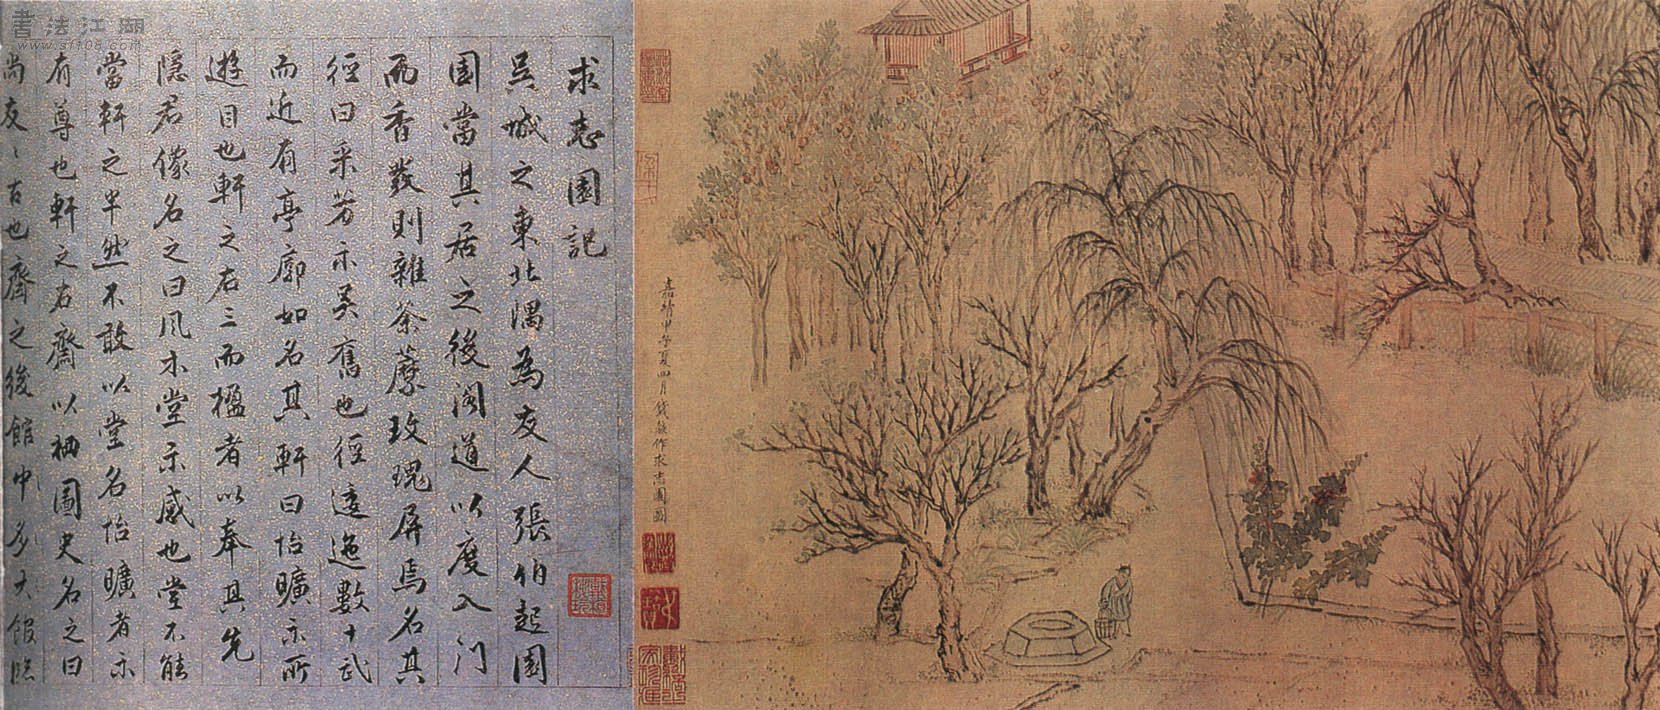 嘉靖甲子夏四月錢穀作求志園圖
求志園記
吳城之東北隅為友人張伯起園
園當其居之後閣道以度入門
而香發則雜荼蘼玫瑰屏焉名其
徑曰采芳示吳舊也徑逶迤數十武
而近有亭廓如名其軒曰怡曠示所
遊目也軒之右三而楹者以奉其先
隱君像名之曰風木堂示感也堂不能
當軒之半然不敢以堂名怡曠者示
有尊也軒之右齋以栖圖史名之曰
尚友友古也齋之後館中多大
書法江湖
www.sf108.com